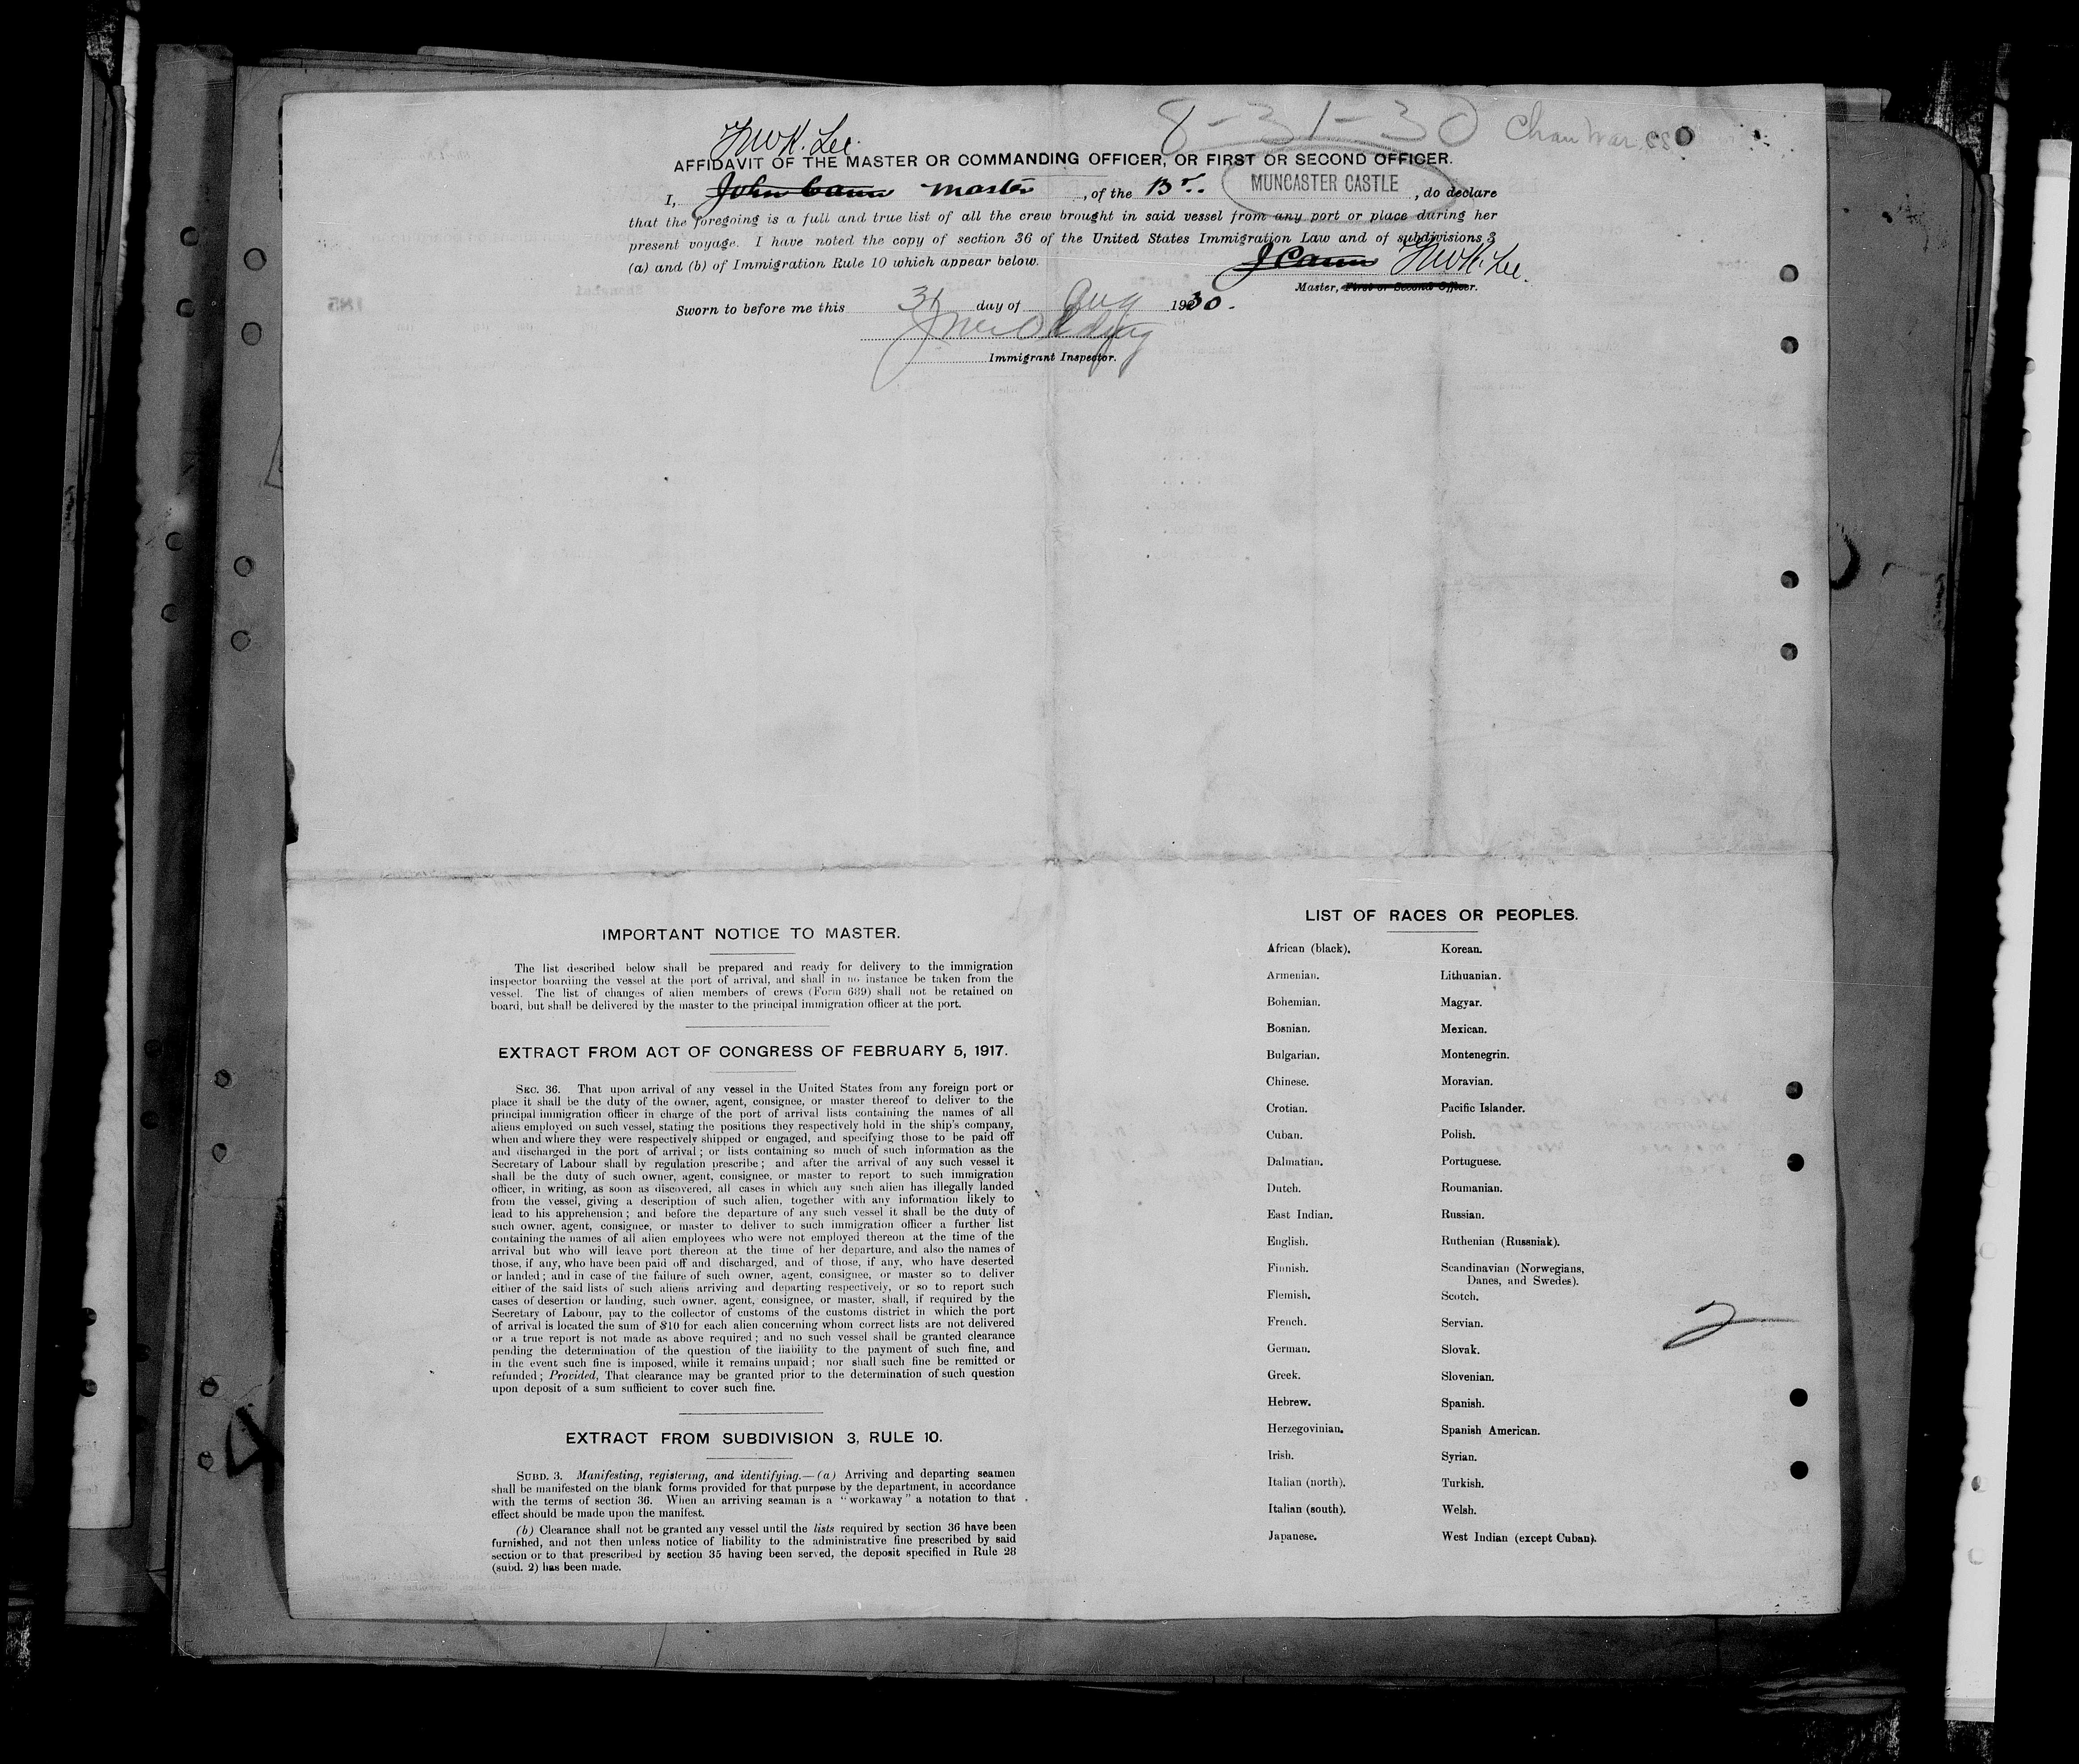 8-31-30 Chan War
K. Lee
AFFIDAVIT OF THE MASTER OR COMMANDING OFFICER, OR FIRST OR SECOND OFFICER.
I, John Cann master, of the Br. MUNCASTER CASTLE, do declare
that the foregoing is a full and true list of all the crew brought in said vessel from any port or place during her
present voyage. I have noted the copy of section 36 of the United States Immigration Law and of subdivisions 3
(a) and (b) of Immigration Rule 10 which appear below.
J Cann K. Lee
Master, First or Second Officer.
Sworn to before me this 31 day of Aug 1930.
Immigrant Inspector.
IMPORTANT NOTICE TO MASTER.
The list described below shall be prepared and ready for delivery to the immigration
inspector boarding the vessel at the port of arrival, and shall in no instance be taken from the
vessel. The list of changes of alien members of crews (Form 689) shall not be retained on
board, but shall be delivered by the master to the principal immigration officer at the port.
EXTRACT FROM ACT OF CONGRESS OF FEBRUARY 5, 1917.
SEC. 36. That upon arrival of any vessel in the United States from any foreign port or
place it shall be the duty of the owner, agent, consignee, or master thereof to deliver to the
principal immigration officer in charge of the port of arrival lists containing the names of all
aliens employed on such vessel, stating the positions they respectively hold in the ship's company,
when and where they were respectively shipped or engaged, and specifying those to be paid off
and discharged in the port of arrival; or lists containing so much of such information as the
Secretary of Labour shall by regulation prescribe; and after the arrival of any such vessel it
shall be the duty of such owner, agent, consignee, or master to report to such immigration
officer, in writing, as soon as discovered, all cases in which any such alien has illegally landed
from the vessel, giving a description of such alien, together with any information likely to
lead to his apprehension; and before the departure of any such vessel it shall be the duty of
such owner, agent, consignee, or master to deliver to such immigration officer a further list
containing the names of all alien employees who were not employed thereon at the time of the
arrival but who will leave port thereon at the time of her departure, and also the names of
those, if any, who have been paid off and discharged, and of those, if any, who have deserted
or landed; and in case of the failure of such owner, agent, consignee, or master so to deliver
either of the said lists of such aliens arriving and departing respectively, or so to report such
cases of desertion or landing, such owner, agent, consignee, or master, shall, if required by the
Secretary of Labour, pay to the collector of customs of the customs district in which the port
of arrival is located the sum of $10 for each alien concerning whom correct lists are not delivered
or a true report is not made as above required; and no such vessel shall be granted clearance
pending the determination of the question of the liability to the payment of such fine, and
in the event such fine is imposed, while it remains unpaid; nor shall such fine be remitted or
refunded; Provided, That clearance may be granted prior to the determination of such question
upon deposit of a sum sufficient to cover such fine.
EXTRACT FROM SUBDIVISION 3, RULE 10.
SUBD. 3. Manifesting, registering, and identifying.—(a) Arriving and departing seamen
shall be manifested on the blank forms provided for that purpose by the department, in accordance
with the terms of section 36. When an arriving seaman is a "workaway" a notation to that
effect should be made upon the manifest.
(b) Clearance shall not be granted any vessel until the lists required by section 36 have been
furnished, and not then unless notice of liability to the administrative fine prescribed by said
section or to that prescribed by section 35 having been served, the deposit specified in Rule 28
(subd. 2) has been made.
LIST OF RACES OR PEOPLES.
African (black). Korean.
Armenian. Lithuanian.
Bohemian. Magyar.
Bosnian. Mexican.
Bulgarian. Montenegrin.
Chinese. Moravian.
Crotian. Pacific Islander.
Cuban. Polish.
Dalmatian. Portuguese.
Dutch. Roumanian.
East Indian. Russian.
English. Ruthenian (Russniak).
Finnish. Scandinavian (Norwegians,
Danes, and Swedes).
Flemish. Scotch.
French. Servian.
German. Slovak.
Greek. Slovenian.
Hebrew. Spanish.
Herzegovinian. Spanish American.
Irish. Syrian.
Italian (north). Turkish.
Italian (south). Welsh.
Japanese. West Indian (except Cuban).
2
4